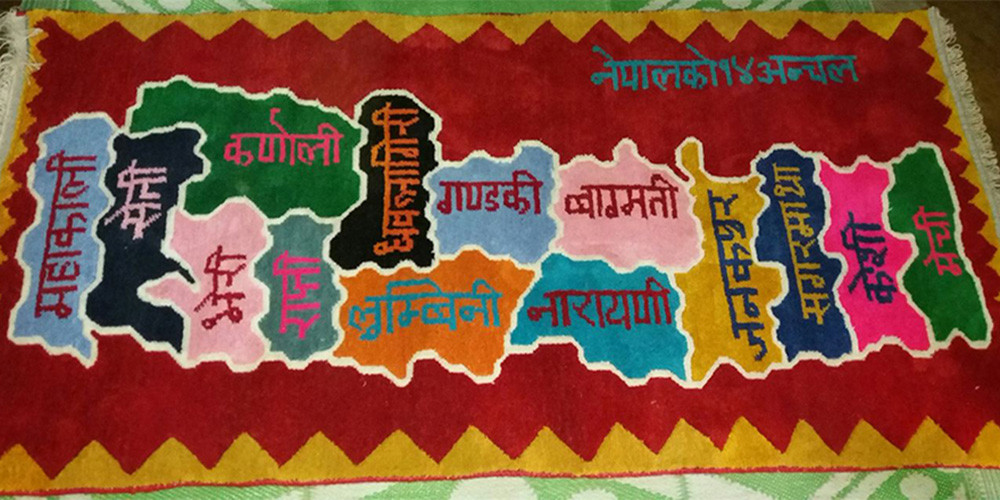 नेपालको१४अन्चल
महाकाली
सेती
कर्णाली
भेरी
राप्ती
धवलागिरी
लुम्विनी
गण्डकी
नारायणी
वाग्मती
जनकपुर
सगरमाथा
कोशी
मेची